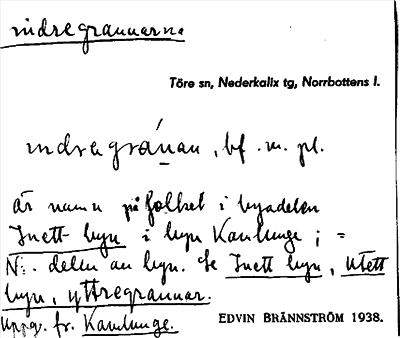 indregrannarna
Töre sn, Nederkalix tg, Norrbottens l.
indregránan, bf. m. pl.
är namn på folket i byadelen
Inett byn i byn Kamlunge; =
N:. delen av byn. Se Inett byn, Utett
byn, yttregrannar.
Uppg. fr. Kamlunge. EDVIN BRÄNNSTRÖM 1938.